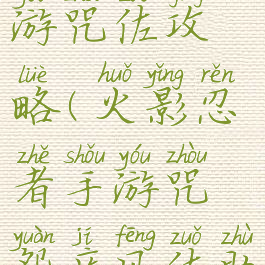 游咒佐攻
lüè huǒ yǐng rěn
略(火影忍
zhě shǒu yóu zhòu
者手游咒
yuàn jí fēng zuǒ zhù